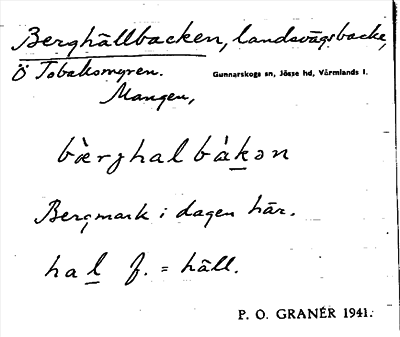 Berghällbacken, landsvägsbacke,
Ö Tobaksmyren. Gunnarskogs sn, Jösse hd, Värmlands l.
Mangen,
bæ̀rghalbàkən
Bergmark i dagen här.
hal f. = häll.
P. O. GRANÉR 1941.